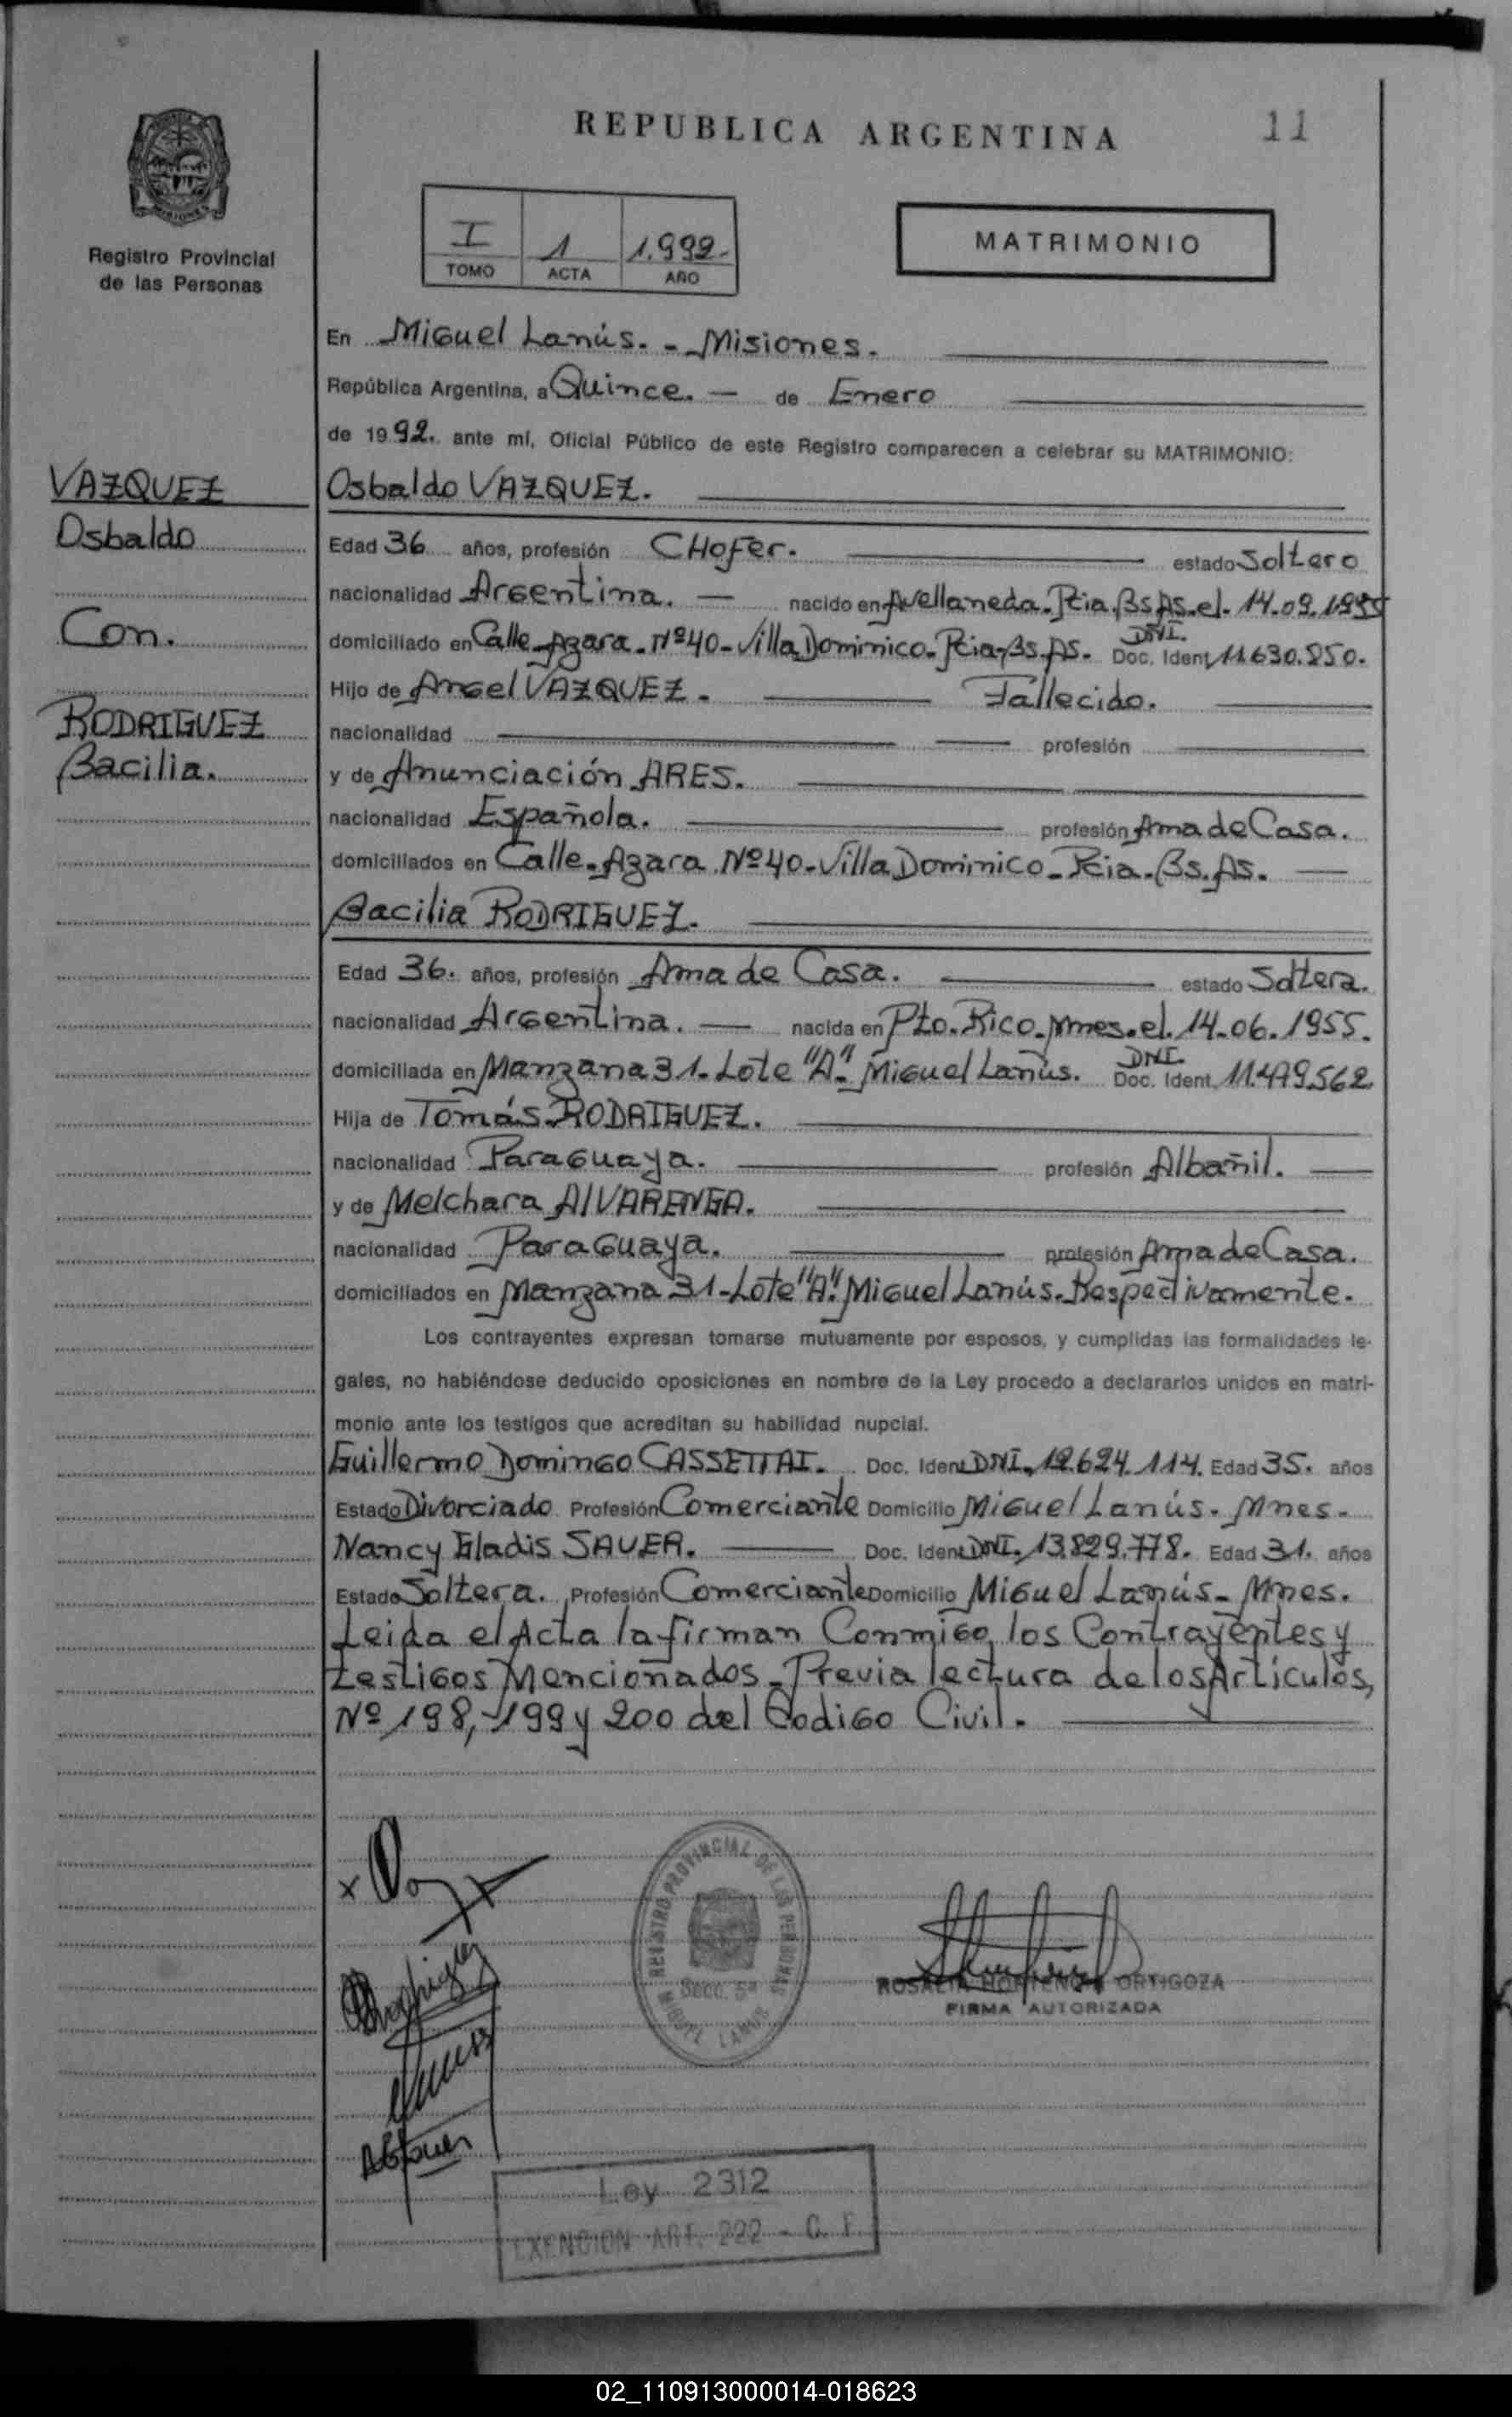 REPUBLICA ARGENTINA
11
MISIONES
Registro Provincial
de las Personas
I 1 1.992.-
TOMO ACTA AÑO
MATRIMONIO
En Miguel Lanús. - Misiones.
República Argentina, a Quince. — de Enero
de 1992. ante mí, Oficial Público de este Registro comparecen a celebrar su MATRIMONIO:
VAZQUEZ
Osbaldo
Con.
RODRIGUEZ
Bacilia.
Osbaldo VAZQUEZ.
Edad 36 años, profesión CHOFer. estado Soltero
nacionalidad Argentina. — nacido en Avellaneda. Pcia. Bs. As. el. 14.09.1955
domiciliado en Calle Azara. Nº 40 - Villa Dominico. Pcia. Bs. As. DNI. Doc. Ident. 11.630.850.
Hijo de Angel VAZQUEZ. Fallecido.
nacionalidad profesión
y de Anunciación ARES.
nacionalidad Española. profesión Ama de Casa.
domiciliados en Calle. Azara Nº 40 - Villa Dominico - Pcia. Bs. As. —
Bacilia RODRIGUEZ.
Edad 36. años, profesión Ama de Casa. estado Soltera.
nacionalidad Argentina. — nacida en Pto. Rico. Mnes. el. 14-06.1955.
domiciliada en Manzana 31. Lote "A". Miguel Lanús. DNI. Doc. Ident. 11.479.562
Hija de Tomás RODRIGUEZ.
nacionalidad Paraguaya. profesión Albañil. —
y de Melchara AlVARENGA.
nacionalidad Paraguaya. profesión Ama de Casa.
domiciliados en Manzana 31 - Lote "A". Miguel Lanús. Respectivamente.
Los contrayentes expresan tomarse mutuamente por esposos, y cumplidas las formalidades le-
gales, no habiéndose deducido oposiciones en nombre de la Ley procedo a declararlos unidos en matri-
monio ante los testigos que acreditan su habilidad nupcial.
Guillermo Domingo Doc. Ident DNI. 12.624.114. Edad 35. años
Estado Divorciado Profesión Comerciante Domicilio Miguel Lanús. Mnes.
Nancy Gladis SAUER. Doc. Ident DNI. 13.829.778. Edad 31. años
Estado Soltera. Profesión Comerciante Domicilio Miguel Lanús - Mnes.
Leida el Acta la firman Conmigo, los Contrayentes y
testigos Mencionados - Previa lectura de los Artículos,
Nº 198, -199 y 200 del Codigo Civil.
REGISTRO PROVINCIAL DE LAS PERSONAS
Secc. 5ª
MIGUEL LANUS
ROSALIA HORTENCIA ORTIGOZA
FIRMA AUTORIZADA
Ley 2312
EXENCION ART. 222 - C. F.
02_110913000014-018623